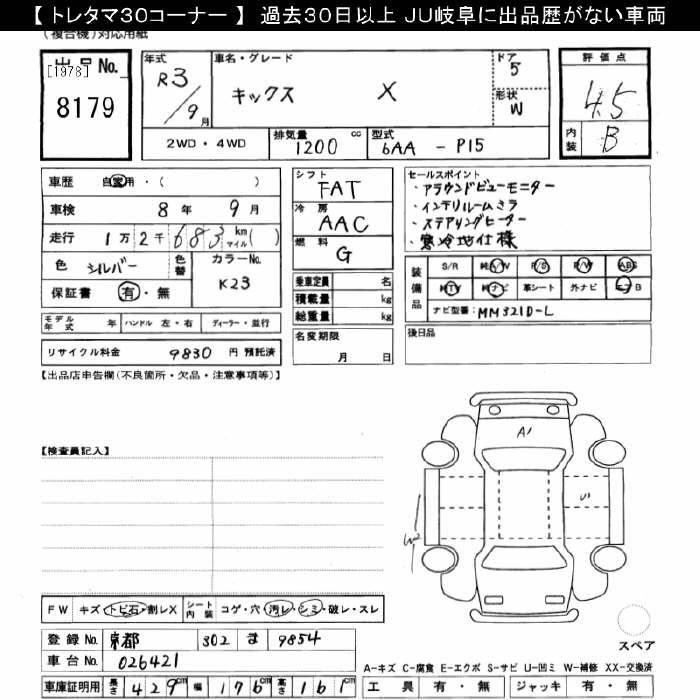 【 トレタマ30コーナー 】 過去30日以上 JU岐阜に出品歴がない車両
(複合機)対応用紙
出品No.
[1978]
8179
年式
R3/9月
車名・グレード
キックス X
ドア
5
形状
W
2WD・4WD
排気量 1200 cc
型式 6AA - P15
評価点
4.5
内装 B
車歴 自家用・( )
車検 8年 9月
走行 1万2千683 km マイル( )
色 シルバー
色替
カラーNo.
K23
保証書 有・無
モデル年式 年 ハンドル 左・右 ディーラー・並行
リサイクル料金 9830 円 預託済
シフト
FAT
冷房
AAC
燃料
G
乗車定員 名
積載量 kg
総重量 kg
名変期限
月 日
セールスポイント
・アラウンドビューモニター
・インテリルームミラ
・ステアリングヒーター
・寒冷地仕様
装備品
S/R 純A/W P/S P/W ABS
純TV 純ナビ 革シート 外ナビ エアB
ナビ型番: MM321D-L
後日品
【出品店申告欄(不良箇所・欠品・注意事項等)】
【検査員記入】
A1
U1
W2
FW キズ・トビ石・割レX
シート内装 コゲ・穴・汚レ・シミ・破レ・スレ
登録No. 京都 302 ま 9854
車台No. 026421
車庫証明用 長さ 429cm 幅 176cm 高さ 161cm
スペア
A-キズ C-腐食 E-エクボ S-サビ U-凹ミ W-補修 XX-交換済
工具 有・無 ジャッキ 有・無